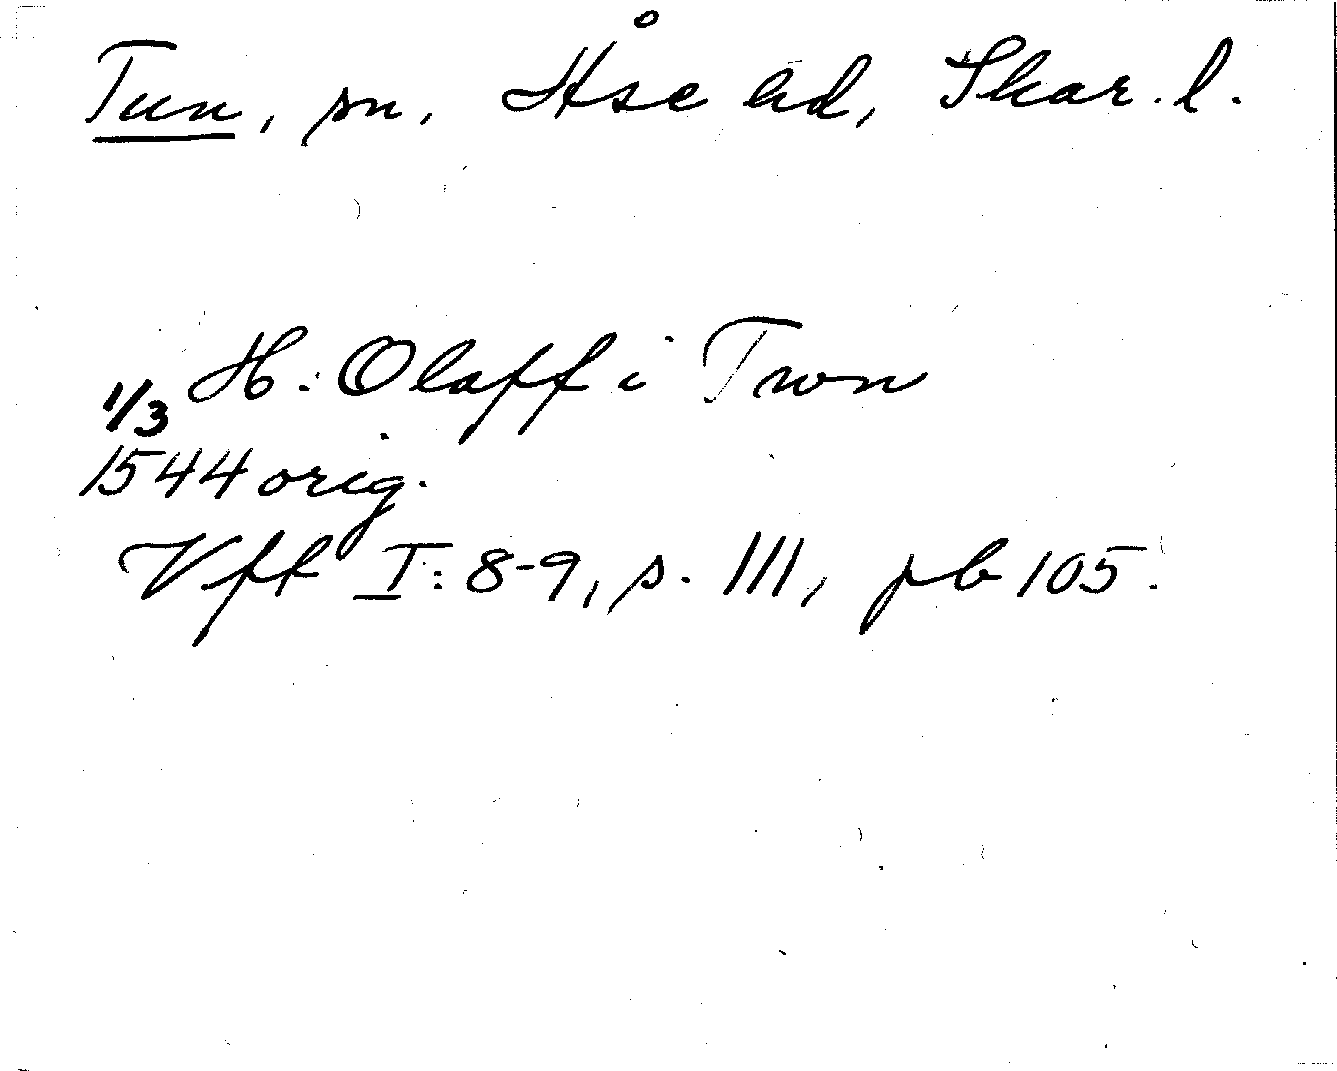 Tun, sn, Åse hd, Skar. l.
H. Olaff i Twn
1/3
1544 orig.
Vff I: 8-9, s. 111, pb 105.